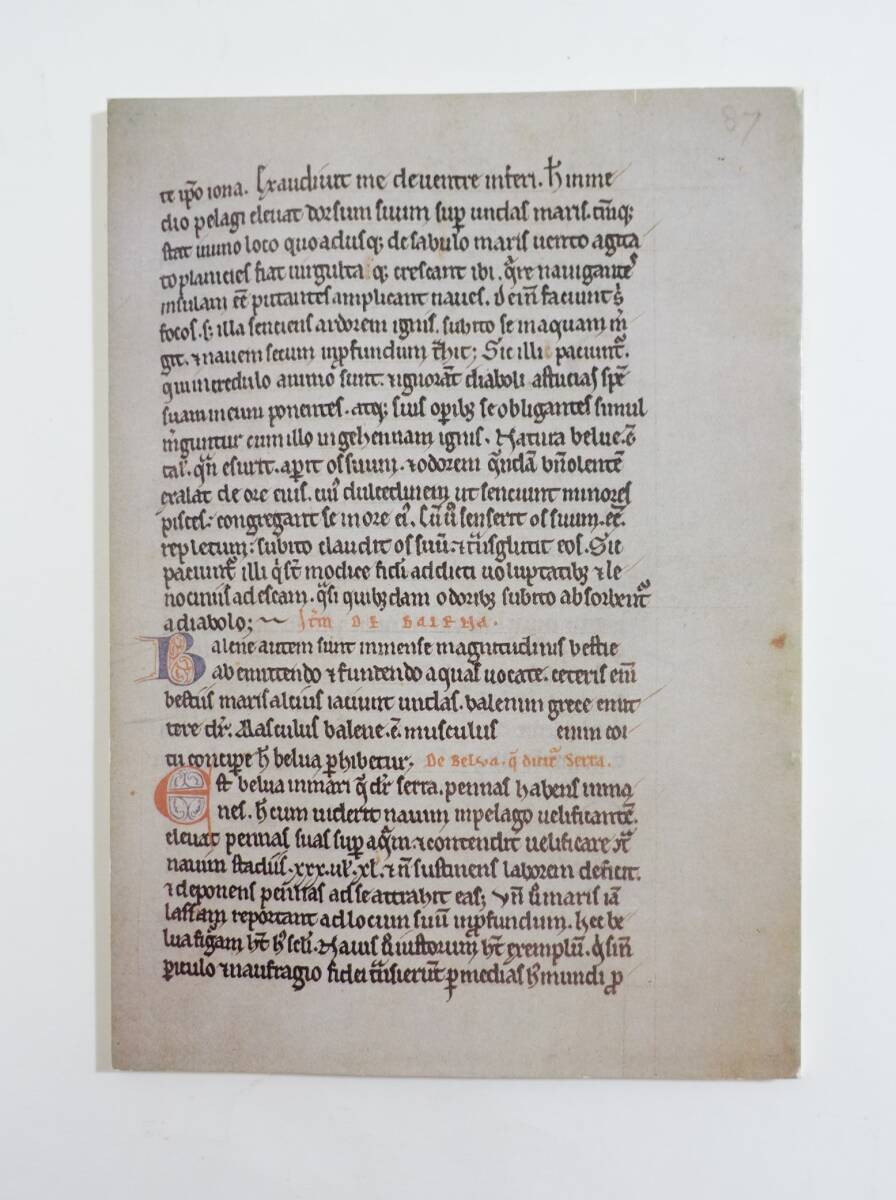 87
te ip̄o iona. Exaudiuit me de uentre inferi. h̄ in me
dio pelagi eleuat dorsum suum sup̱ undas maris. cūq;
stat in uno loco quo adusq; de sabulo maris uento agita
to planicies fiat uirgulta q; crescant ibi. q̄re nauigantes
insulam eē putantes amplicant naues. dein̄ faciunt s̄
focos. s; illa sentiens ardorem ignis. subito se in aquam m̄
git. ⁊ nauem secum in p̱fundum t̄hit; Sic illi paciunt̄.
qui incredulo animo sunt. ⁊ ignorāt diaboli astucias spē
suam in eum ponentes. atq; suis op̱ibꝫ se obligantes simul
m̄guntur cum illo in gehennam ignis. Natura belue. ē
tal'. q̄n esurit. ap̱it os suum. ⁊ odorem q̄ndā bn̄olentē
exalat de ore eius. cui' dulcedinem ut senciunt minores
pisces: congregant se in ore ei'. Cū ū senserit os suum. eē.
repletum: subito claudit os suū. ⁊ t̄nsglutit eos. Sic
paciunt̄ illi q̄ st̄ modice fidi addicti uoluptatibꝫ ⁊ le
nociniis ad escam. q̄si quibꝫdam odoribꝫ subito absorbent̄
a diabolo; It̄m DE BALENA.
Balene autem sunt inmense magnitudinis bestie
ab emittendo ⁊ fundendo aquas uocate. ceteris eim̄
bestiis maris alcius iaciunt undas. balenim grece emit
tere dr̄. Masculus balene. ē. musculus enim coi
tu concip̱e h̄ belua p̱hibetur; De Belua. q̄ dicit̄ Serra.
Est belua in mari q̄ dr̄ serra. pennas habens inma
nes. h̄ cum uiderit nauim in pelago uelificantē.
eleuat pennas suas sup̱ aq̄m. ⁊ contendit uelificare ꝯt̄
nauim stadiis. xxx. ul'. xl. ⁊ n̄ sustinens laborem deficit.
⁊ deponens pennas ad se attrahit eas; Vn̄ ū maris iā
lassam reportant ad locum suū in p̱fundum. hec be
lua fig̱am ht̄ h' scli'. Nauis ū iustorum ht̄ exemplū. q̄ sin̄
p̱iculo ⁊ naufragio fidei t̄nsierūt p̱ medias h' mundi p̱